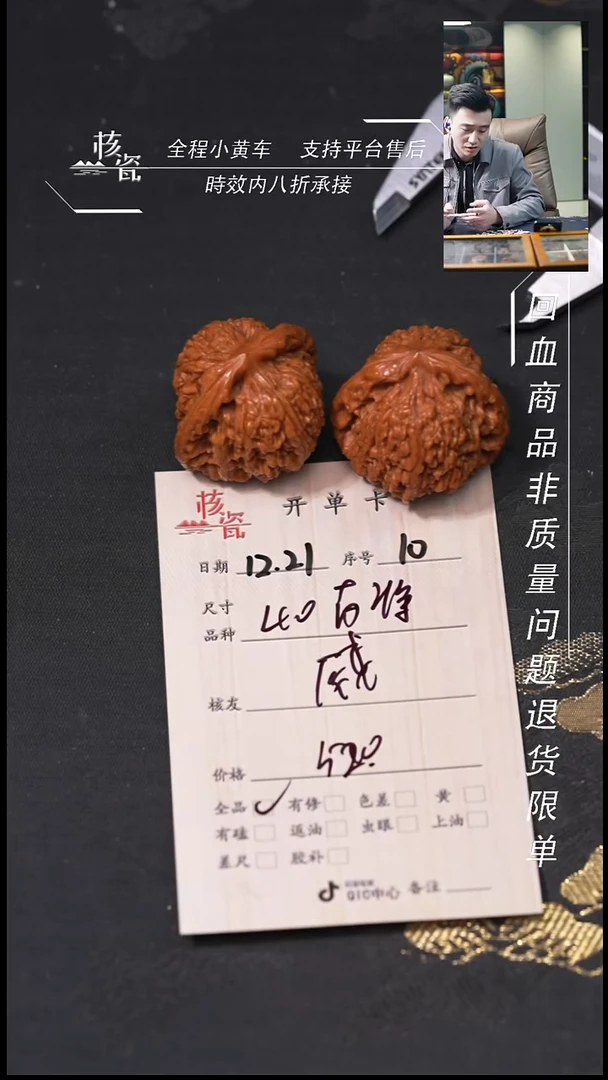 核瓷
全程小黄车 支持平台售后
時效内八折承接
回血商品非质量问题退货限单
核瓷
开单卡
日期 12.21 序号 10
尺寸
品种 40
核友 威
价格
全品 ✓ 有修 色差 黄
有磕 返油 虫眼 上油
差尺 胶补
QIC中心 备注